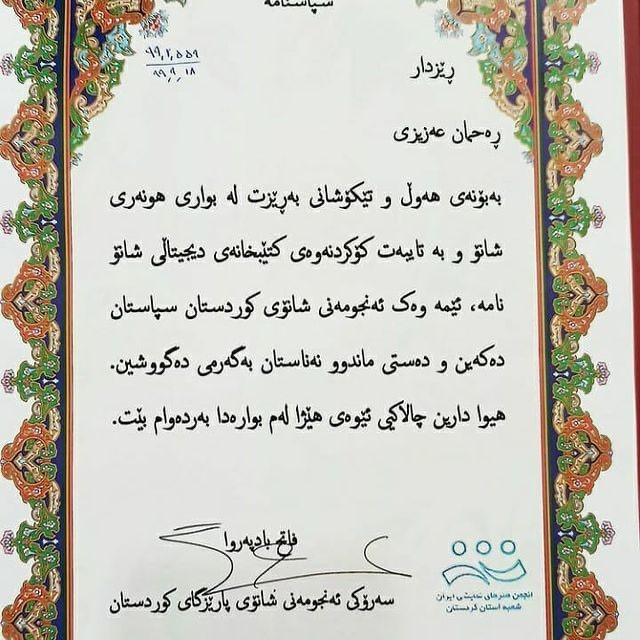 سپاسنامە
۹۹٫۲٫۵۵۹
۹۹٫۹٫۱۸
ڕێزدار
ڕەحمان عەزیزی
بەبۆنەی هەوڵ و تێکۆشانی بەڕێزت لە بواری هونەری
شانۆ و بە تایبەت کۆکردنەوەی کتێبخانەی دیجیتاڵی شانۆ
نامە، ئێمە وەک ئەنجومەنی شانۆی کوردستان سپاستان
دەکەین و دەستی ماندوو نەناستان بەگەرمی دەگووشین.
هیوا دارین چالاکیی ئێوەی هێژا لەم بوارەدا بەردەوام بێت.
فاتح بادپەروا
سەرۆکی ئەنجومەنی شانۆی پارێزگای کوردستان
انجمن هنرهای نمایشی ایران
شعبه استان کردستان